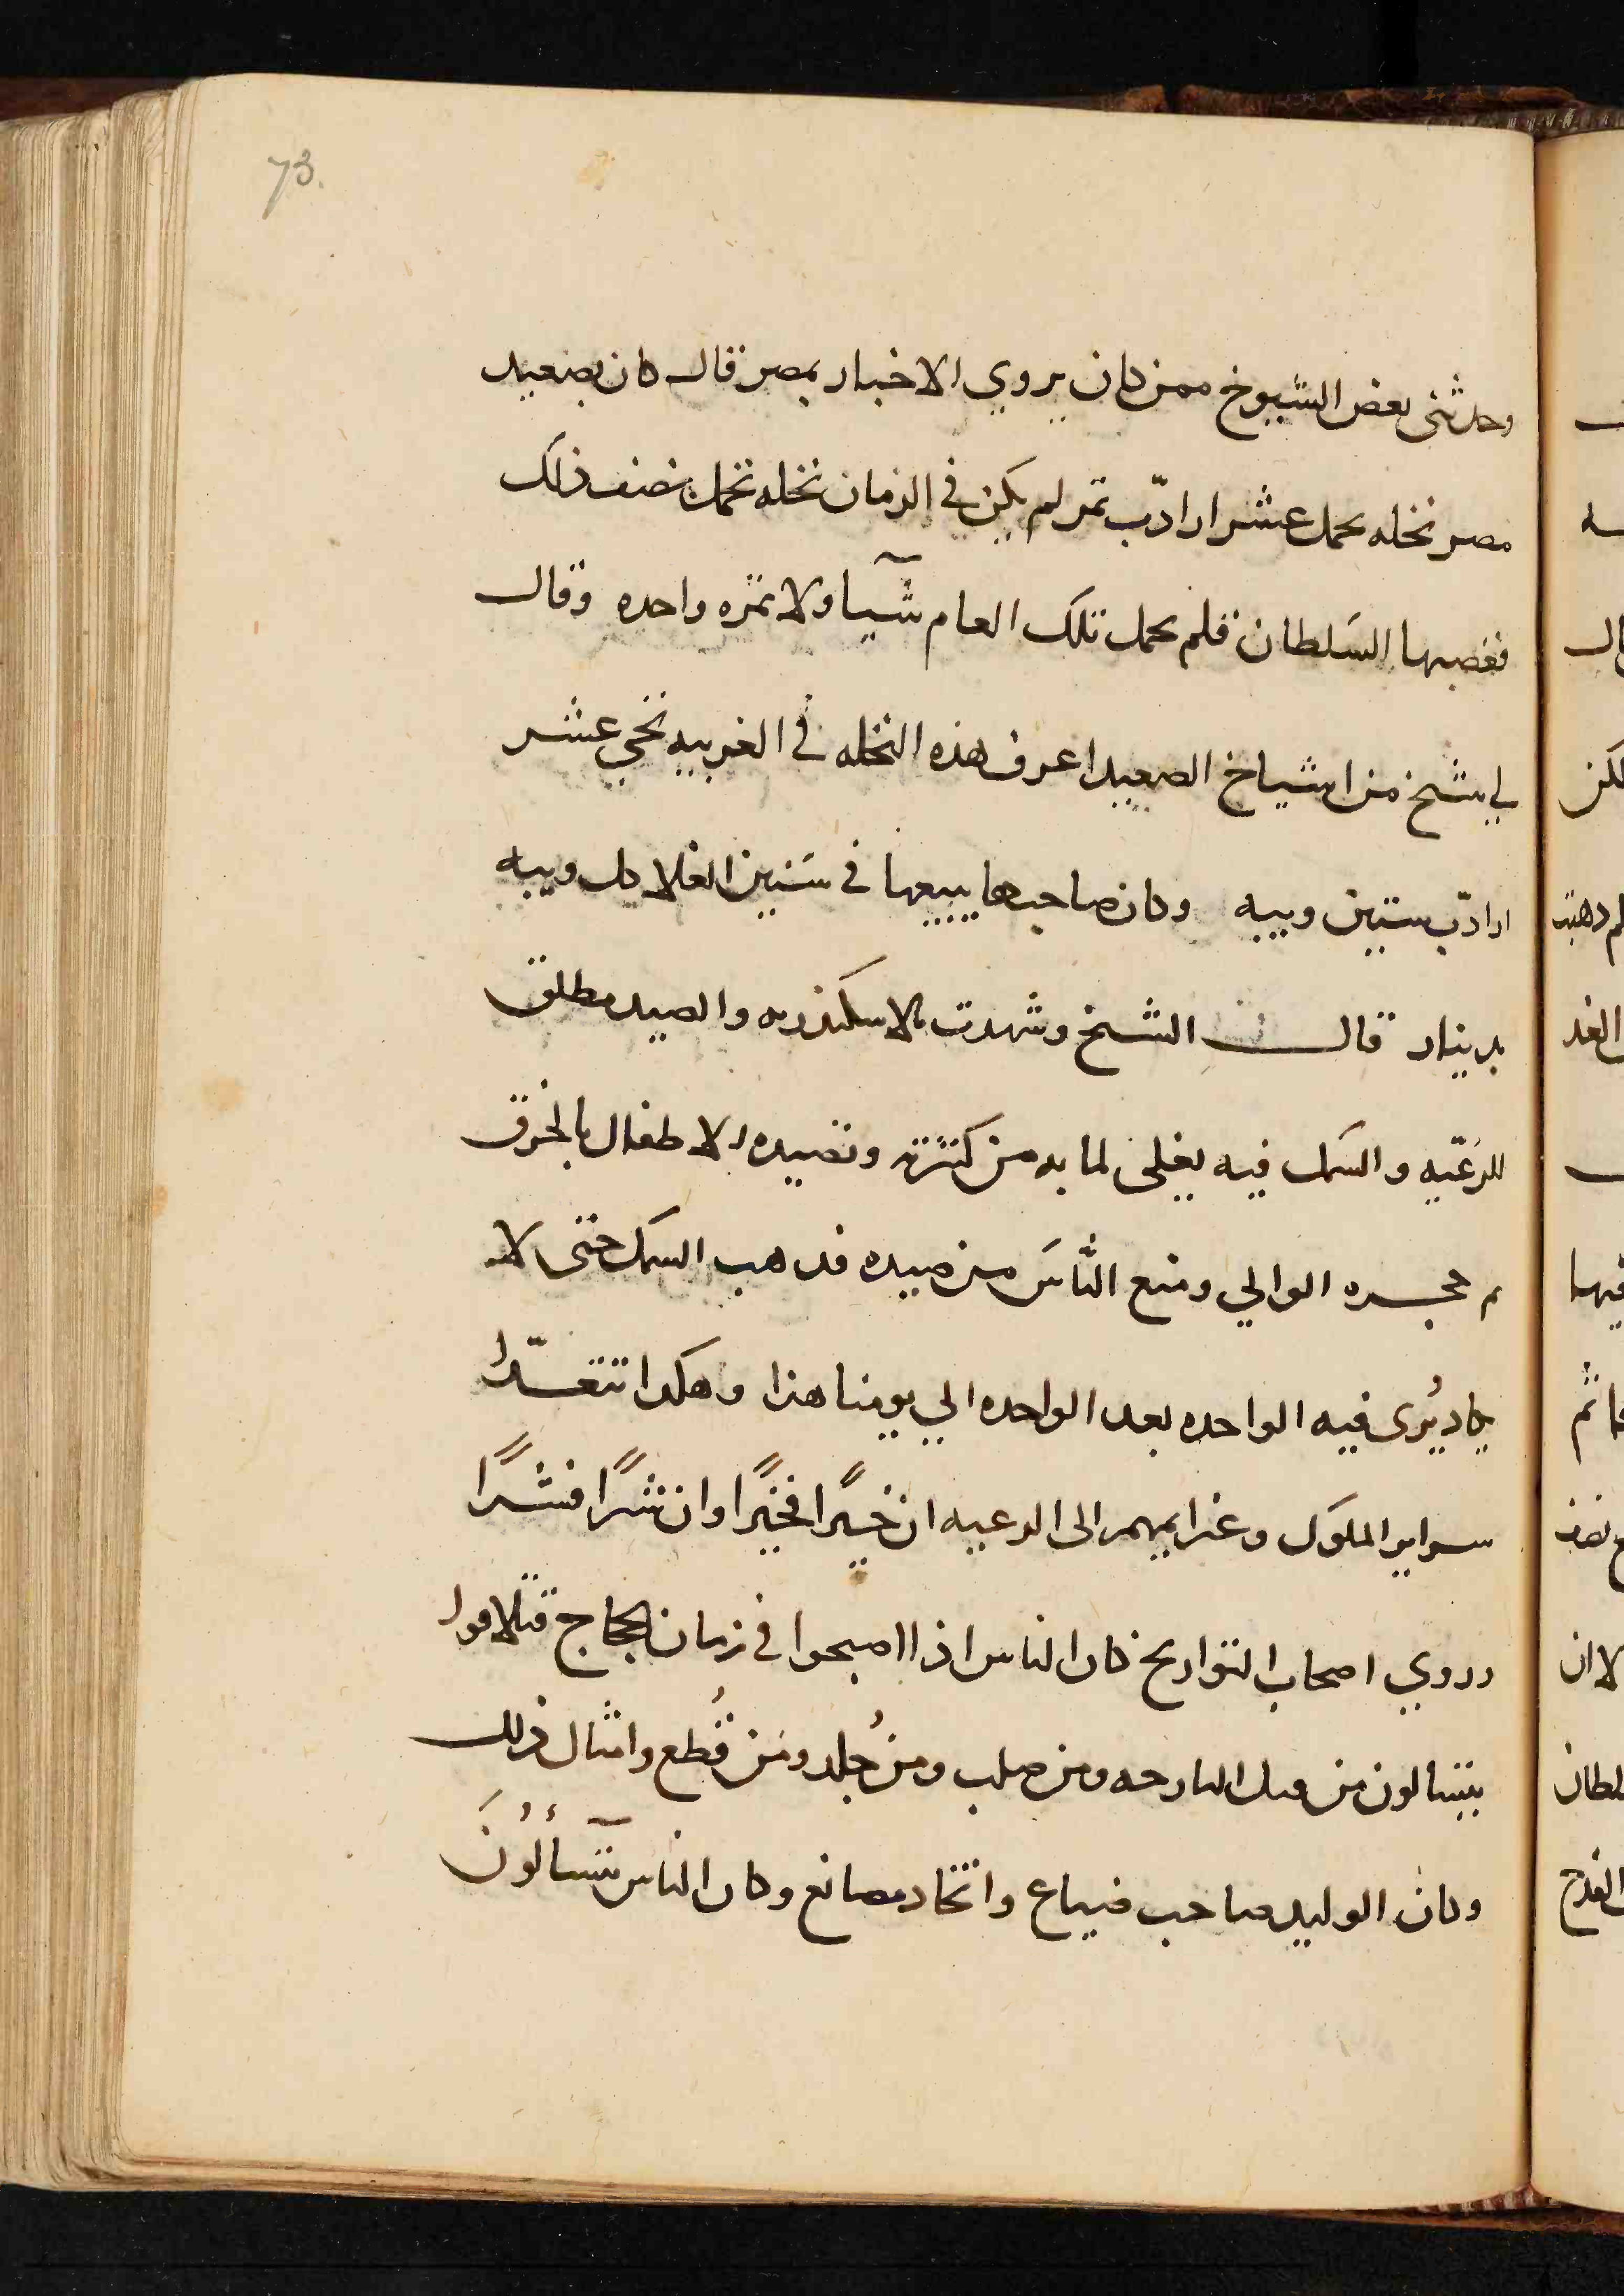 73.
وحدثنى بعض الشيوخ ممن كان يروي الاخبار بمصر قال كان بصعيد
مصر نخله تحمل عشر ارادّب تمر لم يكن في الزمان نخله تحمل نصف ذلك
فغصبها السلطان فلم تحمل تلك العام شيا ولا تمره واحده وقال
لي شيخ من اشياخ الصعيد اعرف هذه النخله في الغربيه تجي عشر
ارادّب ستين ويبه وكان صاحبها يبيعها في سنين الغلا كل ويبه
بدينار قال الشيخ وشهدت بالاسكندريه والصيد مطلق
للرعّيه والسمك فيه يغلى لما به من كثرته وتصيده الاطفال بالخرق
ثم حجره الوالي ومنع النَّاسَ من صيده فدهب السمك حتى لا
يكاد يُرى فيه الواحده بعد الواحده الي يومنا هذا وهكدا تتعدّا
سراير الملوك وعزايمهم الى الرعيه ان خيرًا فخيرًا وان شرًا فشرًا
وروي اصحاب التواريخ كان الناس اذا اصبحوا في زمان الحجاج تلاقوا
يتسالون من قتل البارحه ومن صلب ومن جُلد ومن قُطع وامثال ذلك
وكان الوليد صاحب ضياع واتخاد مصانع وكان الناس يتسآلُونَ